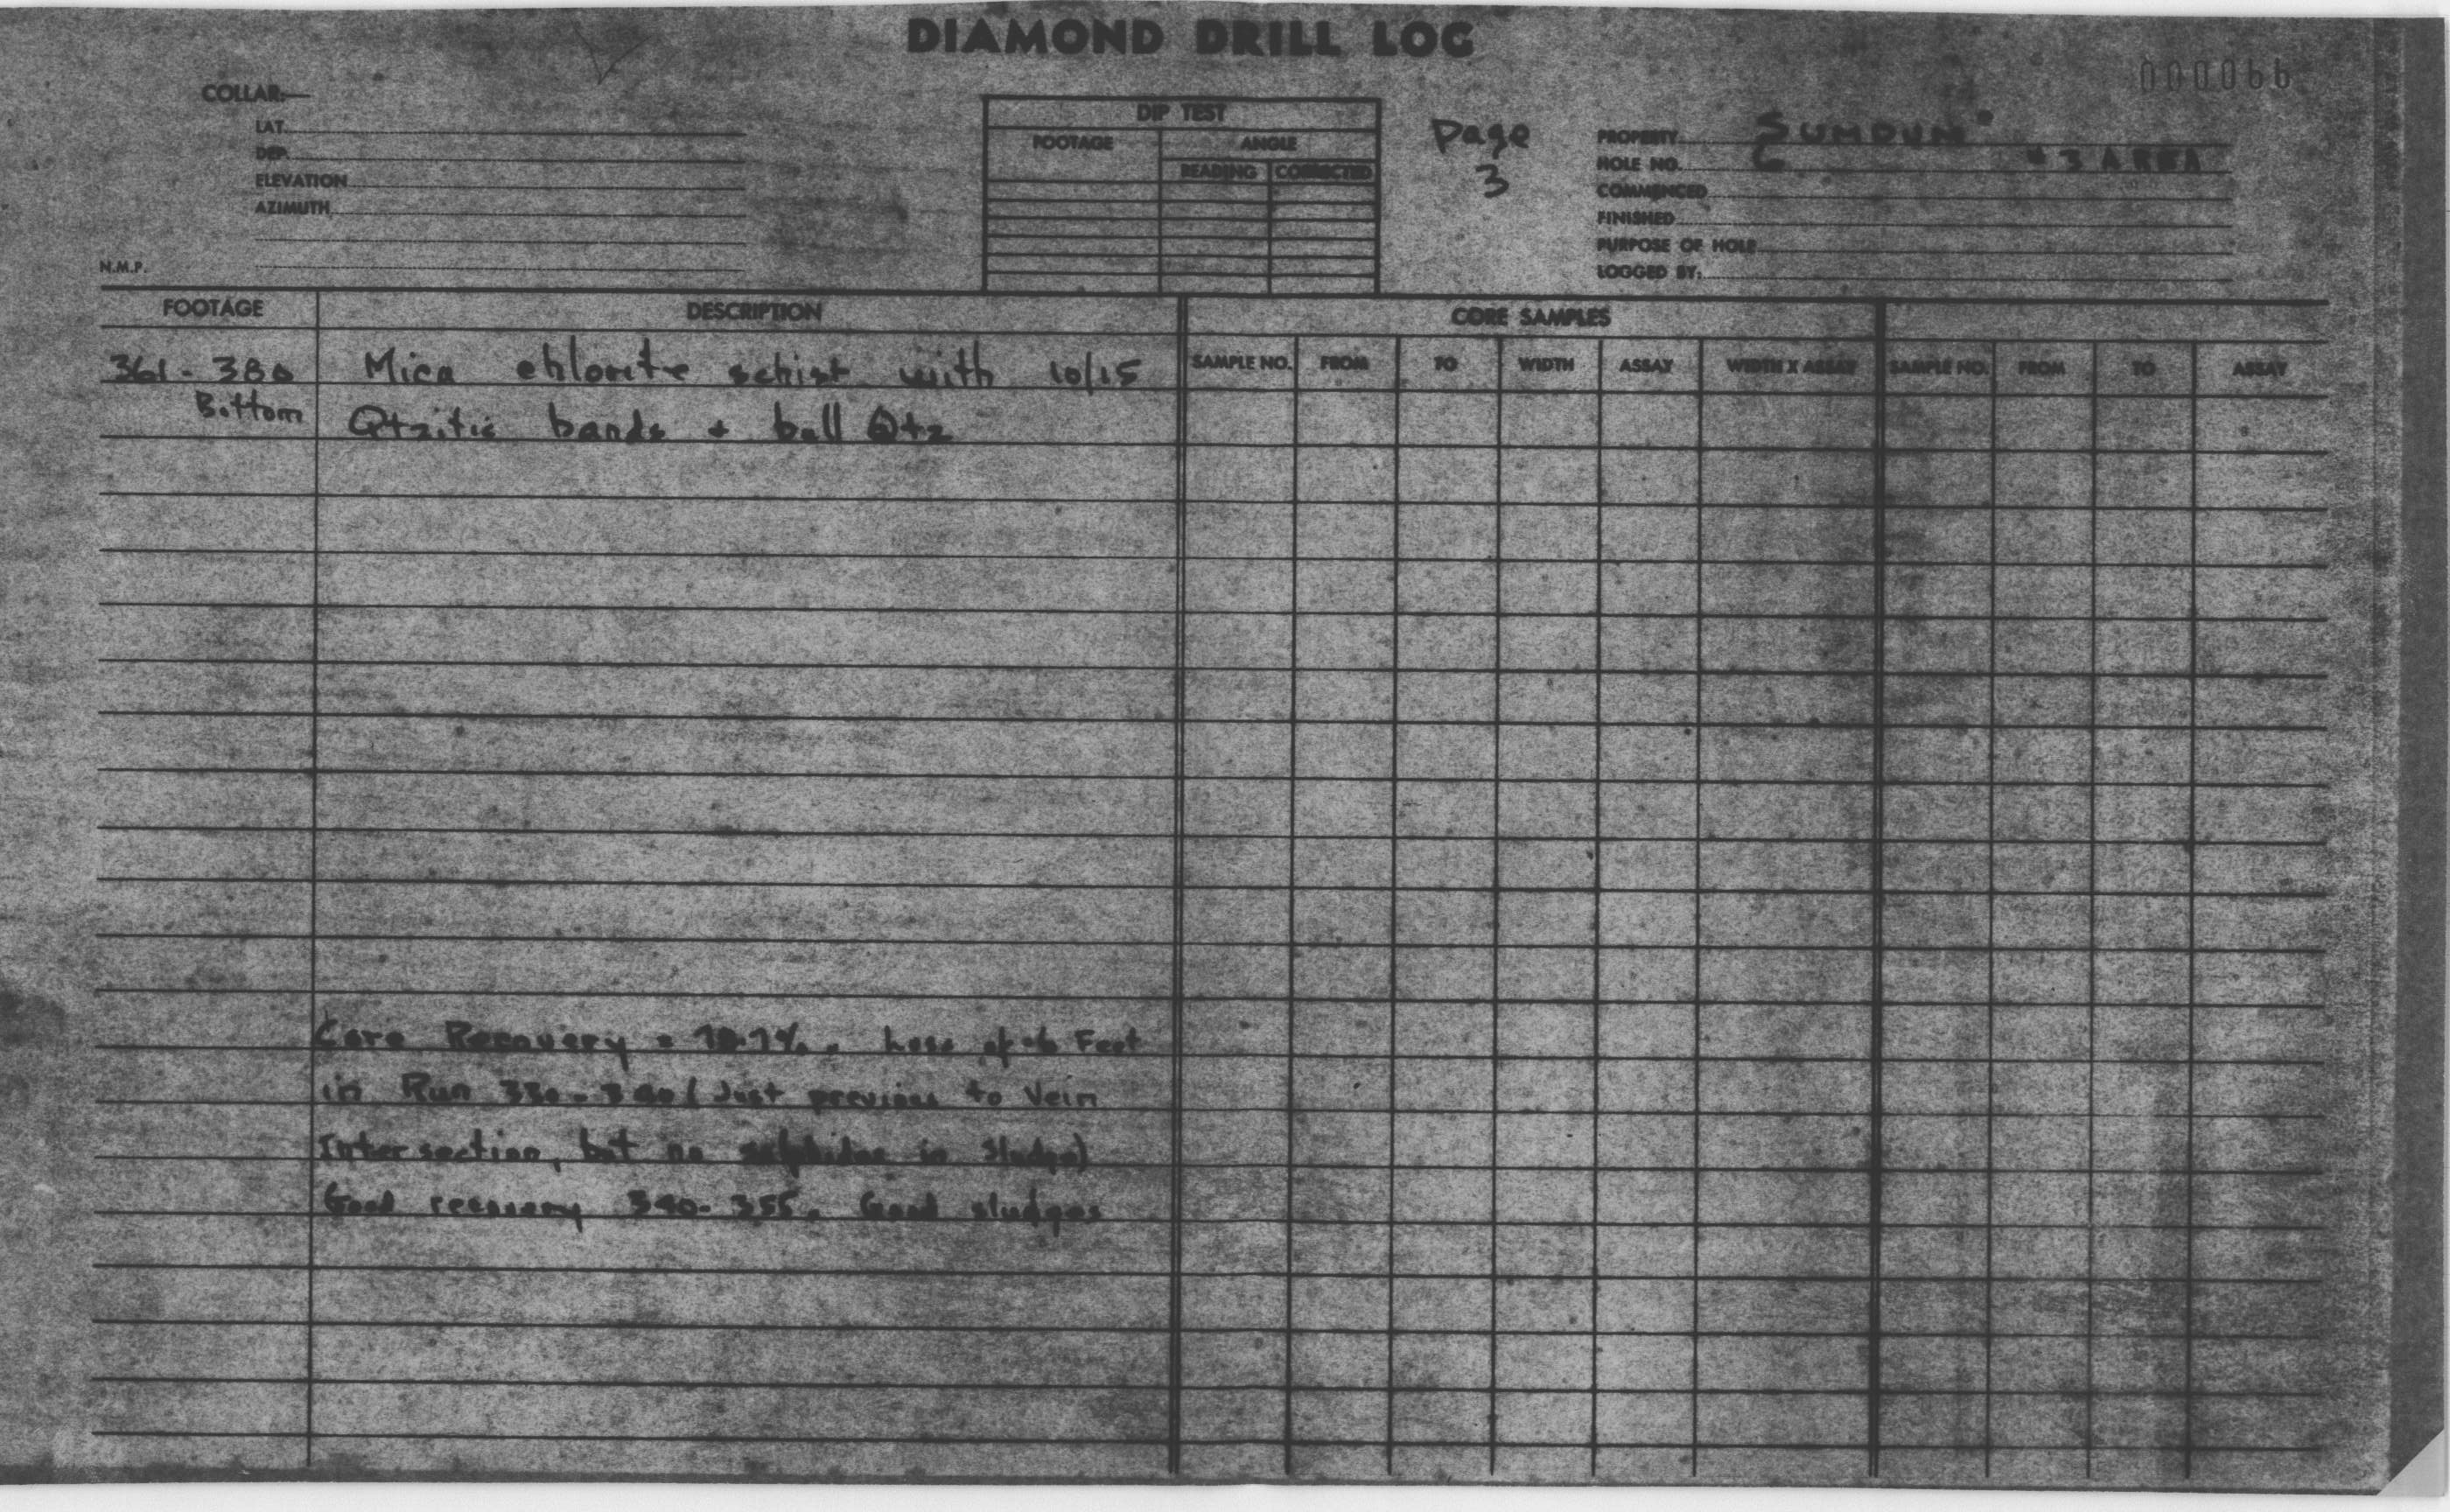 DIAMOND DRILL LOG
000066
COLLAR:—
LAT.
DEP.
ELEVATION
AZIMUTH
N.M.P.
DIP TEST
FOOTAGE ANGLE
READING CORRECTED
Page
3
PROPERTY SUMDUM
HOLE NO. 6 #3 AREA
COMMENCED
FINISHED
PURPOSE OF HOLE
LOGGED BY:
FOOTAGE DESCRIPTION CORE SAMPLES
SAMPLE NO. FROM TO WIDTH ASSAY WIDTH X ASSAY SAMPLE NO. FROM TO ASSAY
361-380 Mica chlorite schist with 10/15
Bottom Qtzitic bands + bull Qtz
Core Recovery = Loss of Feet
in Run 330-340 (Just previous to Vein
Intersection, but no sulphides in Sludge)
Good recovery 340-355. Good sludges